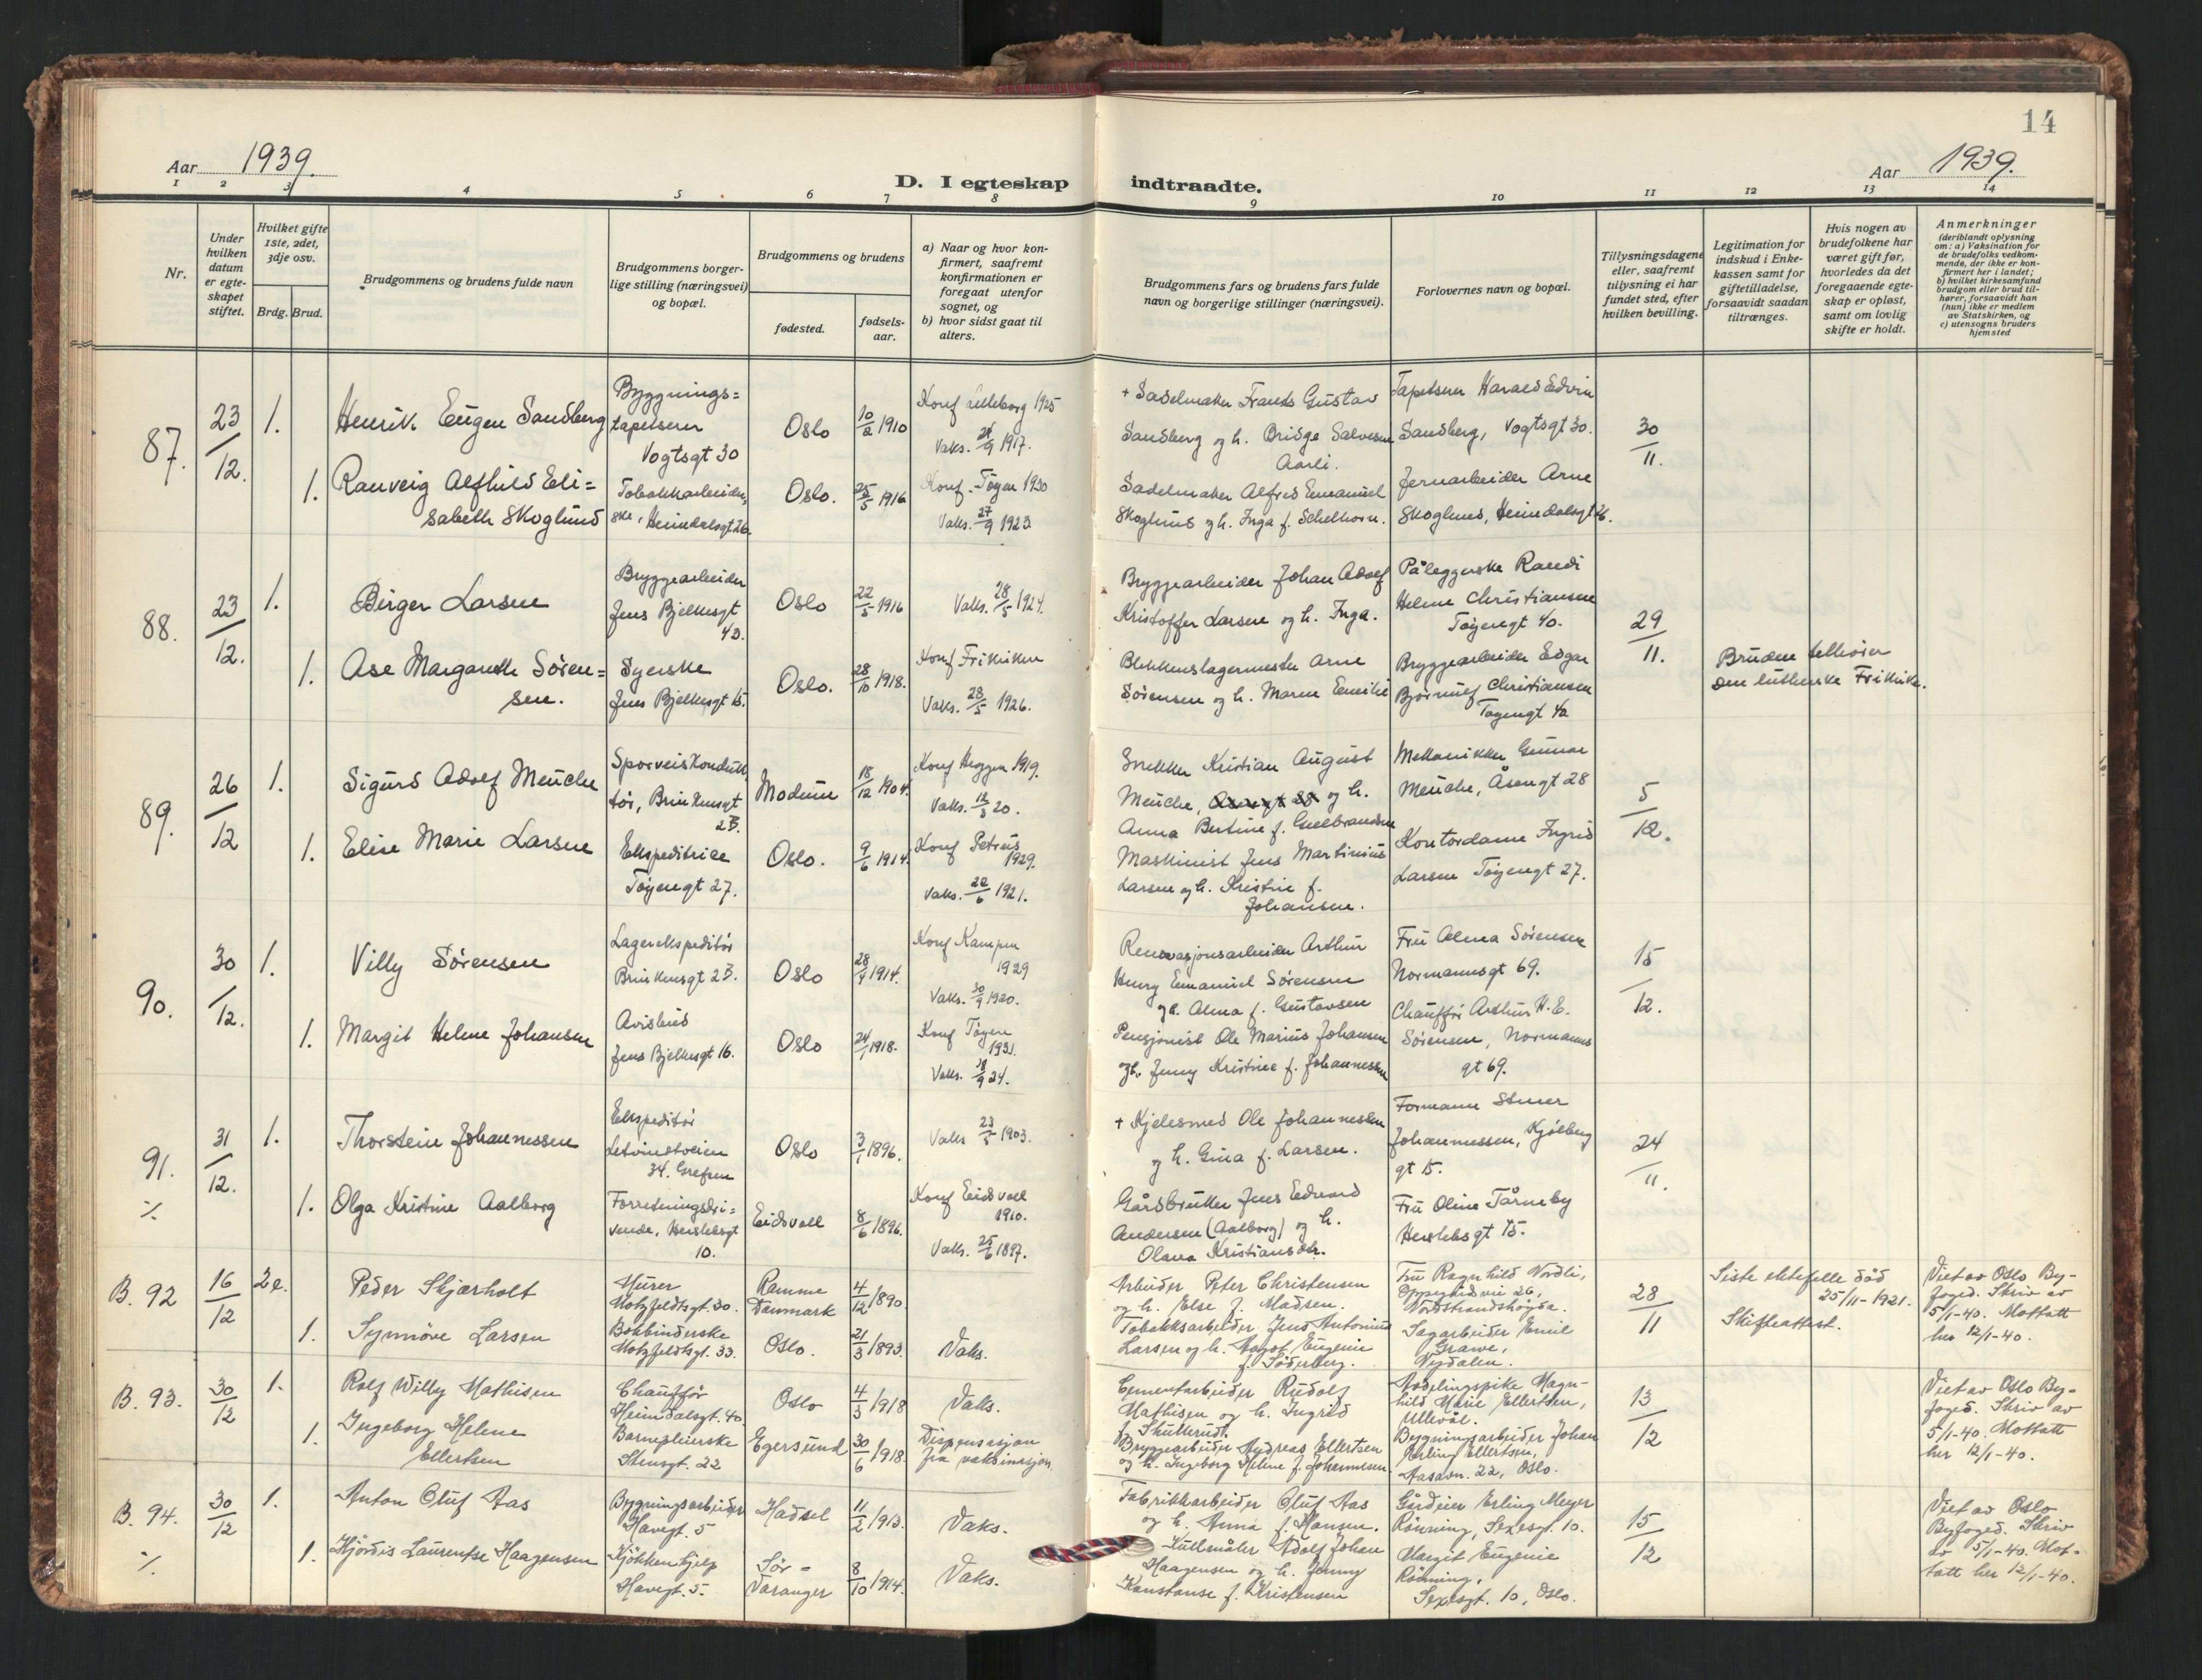 14
Aar 1939.
D. I egteskap indtraadte.
Aar 1939.
1 2 3 4 5 6 7 8 9 10 11 12 13 14
Nr.
Under hvilken datum er egteskapet stiftet.
Hvilket gifte 1ste, 2det, 3dje osv.
Brdg. Brud.
Brudgommens og brudens fulde navn
Brudgommens borgerlige stilling (næringsvei) og bopæl.
Brudgommens og brudens
fødested.
fødselsaar.
a) Naar og hvor konfirmert, saafremt konfirmationen er foregaat utenfor sognet, og
b) hvor sidst gaat til alters.
Brudgommens fars og brudens fars fulde navn og borgerlige stillinger (næringsvei).
Forlovernes navn og bopæl.
Tillysningsdagene eller, saafremt tillysning ei har fundet sted, efter hvilken bevilling.
Legitimation for indskud i Enkekassen samt for giftetilladelse, forsaavidt saadan tiltrænges.
Hvis nogen av brudefolkene har været gift før, hvorledes da det foregaaende egteskap er opløst, samt om lovlig skifte er holdt.
Anmerkninger
(deriblandt oplysning om: a) Vaksination for de brudefolks vedkommende, der ikke er konfirmert her i landet;
b) hvilket kirkesamfund brudgom eller brud tilhører, forsaavidt han (hun) ikke er medlem av Statskirken, og
c) utensogns bruders hjemsted
87. 23/12. 1. Henrik Eugen Sandberg
Byggningstapetserer Vogtsgt 30
Oslo 10/2 1910
Konf Lilleborg 1925
Vaks. 1917.
+ Sadelmaker Frants Gustav
Sandberg og h. Bridge Salvesen
Aarli.
Tapetserer Harald Edvin
Sandberg, Vogtsgt 30.
30/11.
1. Ranveig Alfhild Eli=
sabeth Skoglund
Tobakkarbeider=
ske, Heimdalsgt 26.
Oslo. 25/5 1916
Konf. Tøyen 1930
Vaks. 27/9 1923
Sadelmaker Alfred Emanuel
Skoglund og h. Inga f. Schelhorn.
Jernarbeider Arne
Skoglund, Heimdalsgt 26.
88. 23/12. 1. Birger Larsen
Bryggearbeider
Jens Bjelkesgt
Oslo 22/5 1916
Vaks. 28/5 1924.
Bryggearbeider Johan Adolf
Kristoffer Larsen og h. Inga.
Påleggerske Randi
Helene Christiansen
Tøyengt 40.
29/11.
1. Åse Margareth Søren=
sen.
Syerske
Jens Bjelkesgt 15.
Oslo. 28/10 1918.
Konf Frikirken
Vaks. 28/5 1926.
Blikkenslagermester Arne
Sörensen og h. Maren Emilie
Bryggearbeider Edgar
Bjørnulf Christiansen
Tøyengt 40
Bruden tilhører
den lutherske Frikirke.
89. 26/12 1. Sigurd Adolf Meuche
Sporveiskonduk=
tør, Brinkensgt
2B.
Modum 18/12 1904.
Konf Heggen 1919.
Vaks. 12/3 20.
Snekker Kristian August
Meuche, og h.
Anna Bertine f. Gulbrandsen
Mekaniker Gunnar
Meuche, Åsengt 28
5/12.
1. Elise Marie Larsen
Ekspeditrice
Tøyengt 27.
Oslo. 9/6 1914.
Konf Petrus
1929.
Vaks. 22/6 1921.
Maskinist Jens Martinius
Larsen og h. Kristine f.
Johansen.
Kontordame Ingrid
Larsen Tøyengt 27.
90. 30/12. 1. Villy Sørensen
Lagerekspeditør
Brinkensgt 2B.
Oslo 28/4 1914.
Konf Kampen
1929
Vaks. 30/9 1920.
Renovasjonsarbeider Arthur
Henry Emanuel Sörensen
og h. Alma f. Gustavsen
Fru Alma Sörensen
Normannsgt 69.
15/12.
1. Margit Helene Johansen
Avisbud
Jens Bjelkesgt 16.
Oslo 24/1 1918.
Konf Tøyen
1931.
Vaks. 24.
Pensjonist Ole Marius Johansen
og h. Jenny Kristine f. Johannessen
Chauffør Arthur H. E.
Sörensen, Normanns
gt 69.
91. 31/12. 1. Thorstein Johannessen
Ekspeditør
34. Grefsen
Oslo 3/1 1896.
Vaks 23/5 1903.
+ Kjelesmed Ole Johannessen
og h. Gina f. Larsen.
Formann
Johannessen, Kjølberg
gt 15.
24/11.
·/. 1. Olga Kristine Aalborg
Forretningsdri=
vende, Herslebsgt
10.
Eidsvoll 8/6 1896.
Konf Eidsvoll
1910.
Vaks. 25/6 1897.
Gårdbruker Jens Edvard
Andersen (Aalborg) og h.
Olava Kristiansdtr.
Fru Oline Tårneby
Herslebsgt 15.
B. 92 16/12 2e. Peder Skjærholt
Murer
Motzfeldtsgt. 30.
Ramme
Danmark
4/12 1890.
Arbeider Peter Christensen
og h. Else f. Madsen.
Fru Ragnhild Nordli,
26,
Nordstrandshøgda.
28/11
Siste ektefelle död
25/11-1921.
Skifteattest.
Viet av Oslo By-
foged. Skriv av
5/1-40. Mottatt
her 12/1-40.
1. Synnöve Larsen
Bokbinderske
Motzfeldtsgt. 33.
Oslo. 21/3 1893.
Vaks.
Tobakksarbeider Jens Antonius
Larsen og h. Magot Eugenie
f. Söderberg.
Sagarbeider Emil
Grawe,
Nydalen.
B. 93. 30/12 1. Rolf Willy Mathisen
Chauffør
Heimdalsgt. 40.
Oslo 4/3 1918
Vaks.
Cementarbeider Rudolf
Mathisen og h. Ingrid
Avdelingspike Magn-
hild Marie Ellertsen,
Ullevål.
13/12
Viet av Oslo By-
foged. Skriv av
5/1-40. Mottatt
her 12/1-40.
1. Ingeborg Helene
Ellertsen
Barnepleierske
Stensgt. 22
Egersund 30/6 1918.
Dispensasjon
fra vaksinasjon.
Bryggearbeider Andreas Ellertsen
og h. Ingeborg Helene f. Johannesen.
Bygningsarbeider Johan
Erling Ellertsen,
22, Oslo.
B. 94. 30/12 1. Anton Oluf Aas
Bygningsarbeider
Havegt. 5
Hadsel 11/2 1913.
Vaks.
Fabrikkarbeider Oluf Aas
og h. Anna f. Hansen.
Gårdeier Erling Meyer
Rönning, Sexesgt. 10.
15/12
Viet av Oslo
Byfoged. Skriv
av 5/1-40. Mot-
tatt her 12/1-40.
·/. 1. Hjördis Laurentse Haagensen
Kjökkenhjelp
Havegt. 5.
Sör=
Varanger
8/10 1914.
Vaks.
Kullmåler Adolf Johan
Haagensen og h. Jenny
Konstanse f. Kristensen
Margit Eugenie
Rönning,
Sexesgt. 10, Oslo.